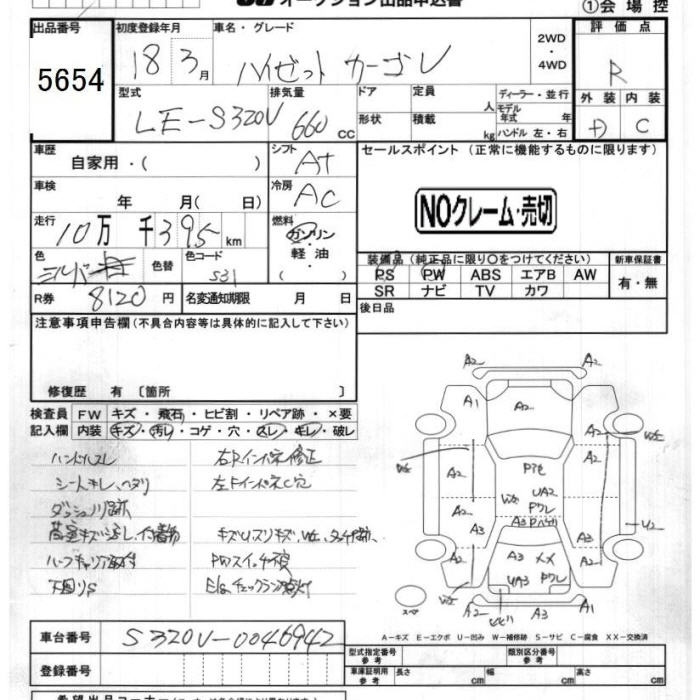 オークション出品申込書
①会場控
出品番号 初度登録年月 車名・グレード 評価点
5654 18 3月 ハイゼット カーゴ 2WD・4WD R
型式 排気量 ドア 定員 人 ディーラー・並行 外装 内装
LE-S320V 660 cc 形状 積載 kg モデル年式 年 ハンドル 左・右 D C
車歴 自家用・( ) シフト AT セールスポイント(正常に機能するものに限ります)
車検 年 月( 日) 冷房 AC
NOクレーム・売切
走行 10万 千395 km 燃料 ガソリン・軽油・( )
色 シルバー 色替 色コード S31
装備品(純正品に限り○をつけてください) 新車保証書
PS PW ABS エアB AW 有・無
SR ナビ TV カワ
R券 8120円 名変通知期限 月 日
後日品
注意事項申告欄(不具合内容等は具体的に記入して下さい)
修復歴 有〔箇所 〕
検査員 FW キズ・飛石・ヒビ割・リペア跡・×要
記入欄 内装 キズ・汚れ・コゲ・穴・スレ・キレ・破レ
ハンドルスレ 右Fインパネ修正
シートキレ、ヘタリ 左Fインパネ穴
ダッシュノリ跡
荷室キズ
ハーフキャリア取付 PWスイッチ不良
下回りS Egチェックランプ点灯
A2 A2 A2
A1 A2 A2 W2
A2 Pワレ UA2
A2 A3 A2
A3 A2 XX UA3 Pワレ A3
A2 A3 A1
スペア
A-キズ E-エクボ U-凹み W-補修跡 S-サビ C-腐食 XX-交換済
車台番号 S320V-0046942
型式指定番号 参考 類別区分番号 参考
登録番号 車庫証明用 参考 長さ cm 幅 cm 高さ cm